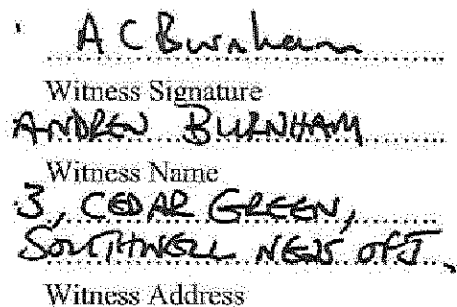 A C Burnham
Witness Signature
ANDREW BURNHAM
Witness Name
3, CEDAR GREEN,
SOUTHWELL NG25 0FJ
Witness Address